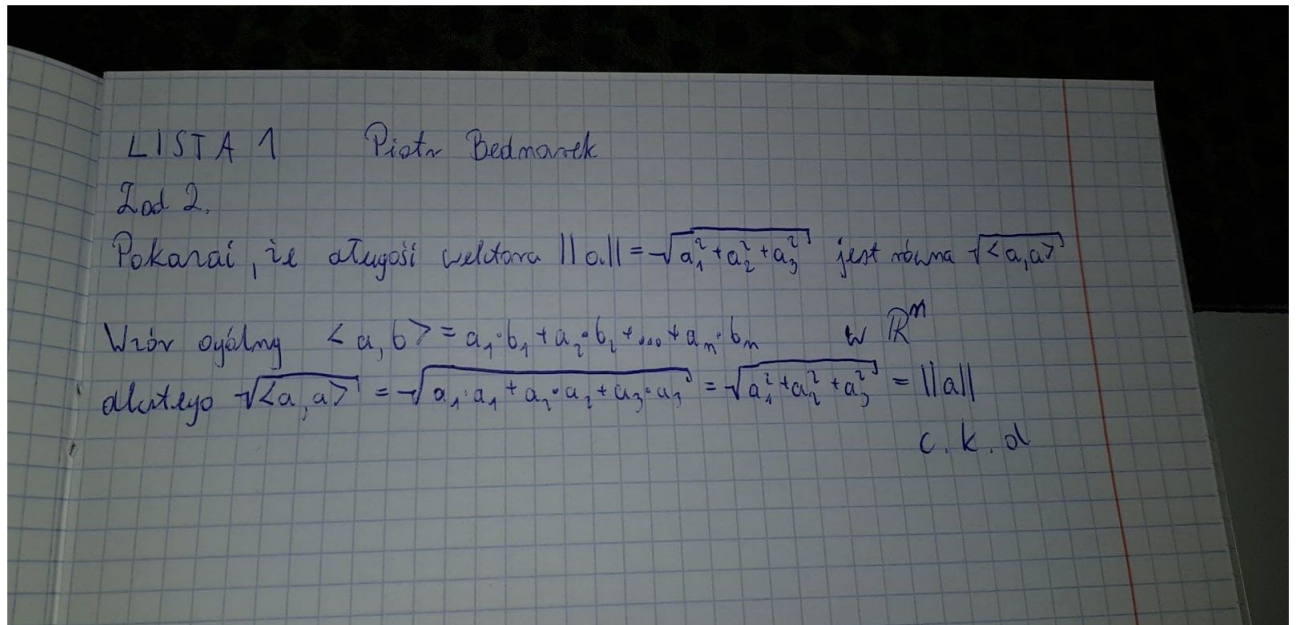 LISTA 1 Piotr Bednarek
Zad 2.
Pokazać, że długość wektora ||a|| = √(a₁² + a₂² + a₃²) jest równa √<a,a>
Wzór ogólny <a,b> = a₁·b₁ + a₂·b₂ + ... + aₙ·bₙ w ℝⁿ
dlatego √<a,a> = √(a₁·a₁ + a₂·a₂ + a₃·a₃) = √(a₁² + a₂² + a₃²) = ||a||
c.k.d